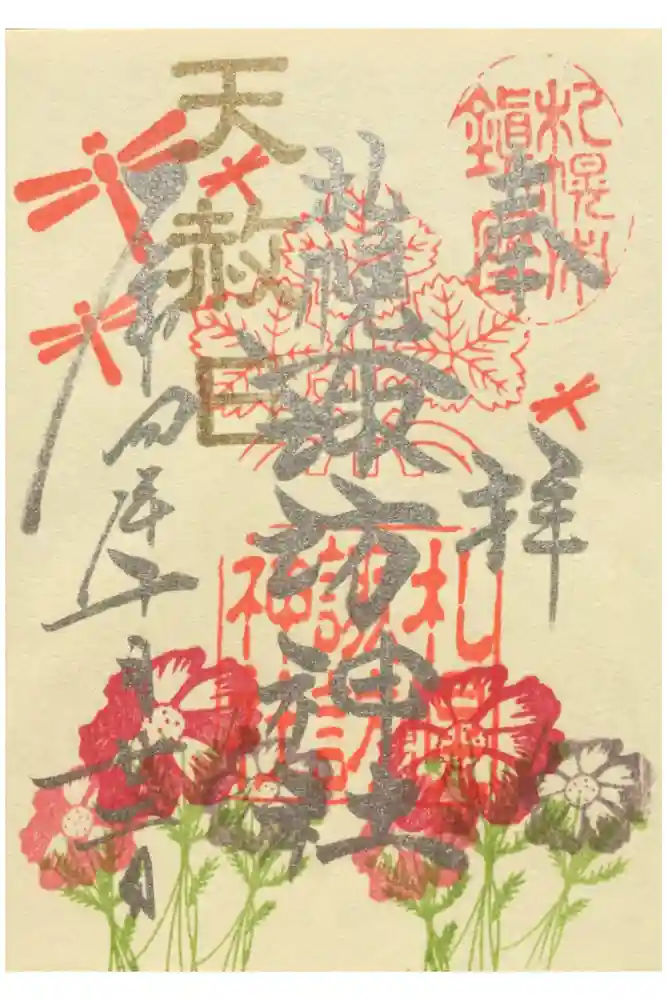 札幌市
鎮座
奉拝
札幌諏訪神社
札幌
諏訪
神社
天赦日
令和四年十月廿二日